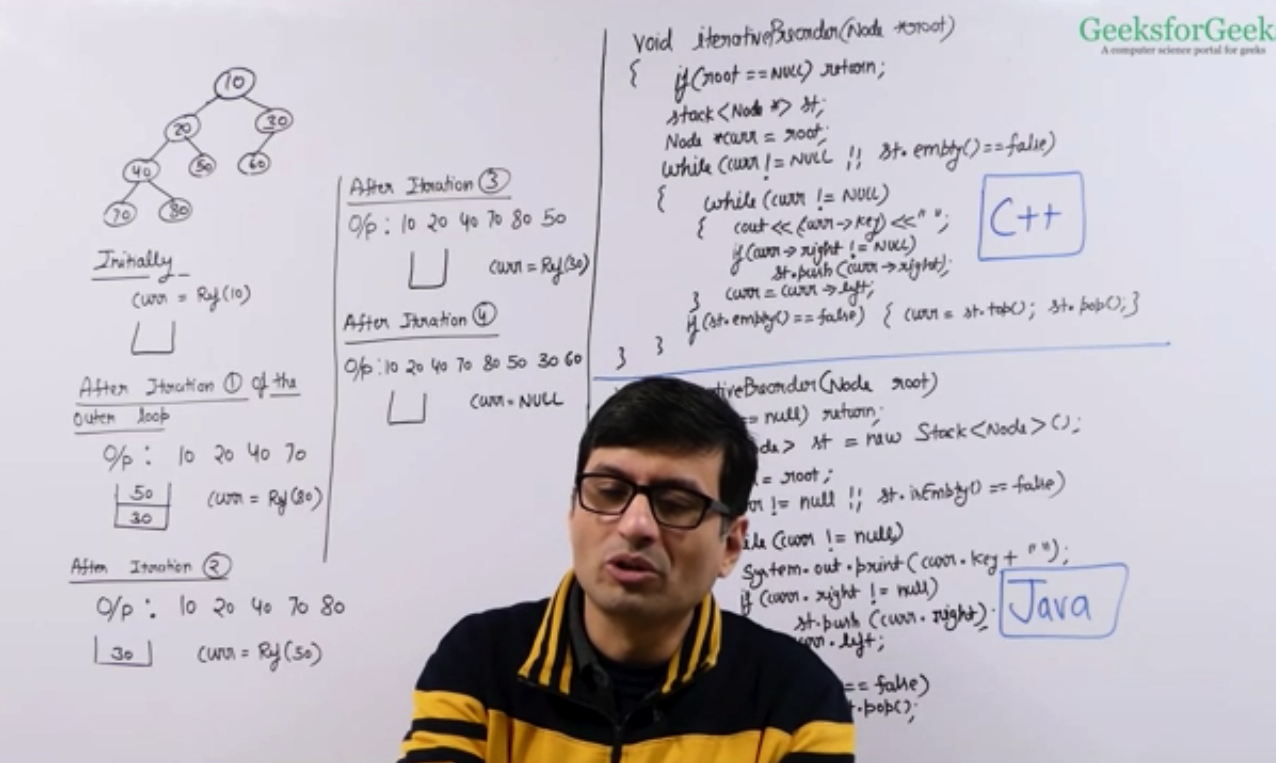 10
20
30
40
50
60
70
80
Initially
curr = Ref(10)
After Itration ① of the
outer loop
O/p : 10 20 40 70
50
30
curr = Ref(80)
After Itration ②
O/p : 10 20 40 70 80
30
curr = Ref(50)
After Itration ③
O/p : 10 20 40 70 80 50
curr = Ref(30)
After Itration ④
O/p : 10 20 40 70 80 50 30 60
curr = NULL
void iterativePreorder(Node *root)
{ if(root == NULL) return;
stack<Node *> st;
Node *curr = root;
while (curr != NULL || st.empty() == false)
{ while (curr != NULL)
{ cout << (curr->key) << " ";
if(curr->right != NULL)
st.push(curr->right);
curr = curr->left;
}
if(st.empty() == false) { curr = st.top(); st.pop(); }
}
}
C++
tivePreorder(Node root)
== null) return;
ode> st = new Stack<Node>();
= root;
rr != null || st.isEmpty() == false)
ile (curr != null)
System.out.print(curr.key + " ");
if (curr.right != null)
st.push(curr.right);
curr.left;
== false)
t.pop();
Java
GeeksforGeek
A computer science portal for geeks